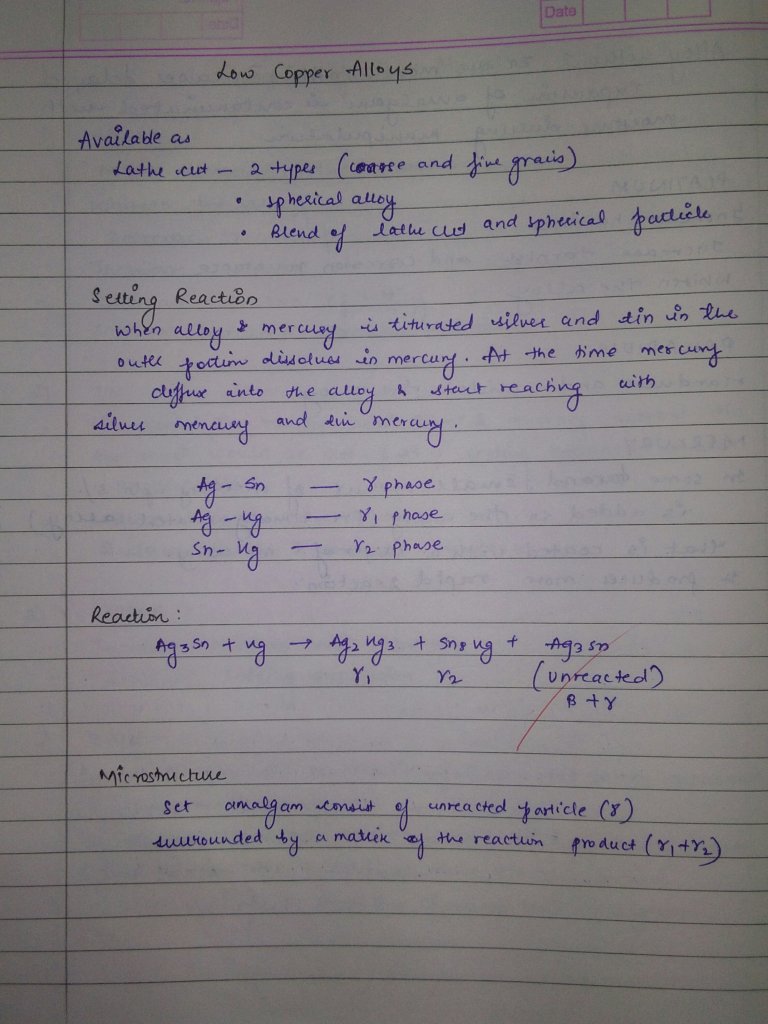 Date
Low Copper Alloys
Available as
Lathe cut — 2 types (coarse and fine grains)
• spherical alloy
• Blend of lathe cut and spherical particle
Setting Reaction
When alloy & mercury is titurated silver and tin in the
outer portion dissolves in mercury. At the time mercury
diffux into the alloy & start reacting with
silver mercury and tin mercury.
Ag - Sn — γ phase
Ag - Hg — γ1 phase
Sn - Hg — γ2 phase
Reaction :
Ag3Sn + Hg → Ag2Hg3 + Sn8Hg + Ag3Sn
γ1 γ2 (unreacted)
β + γ
Microstructure
Set amalgam consist of unreacted particle (γ)
surrounded by a matrix of the reaction product (γ1+γ2)